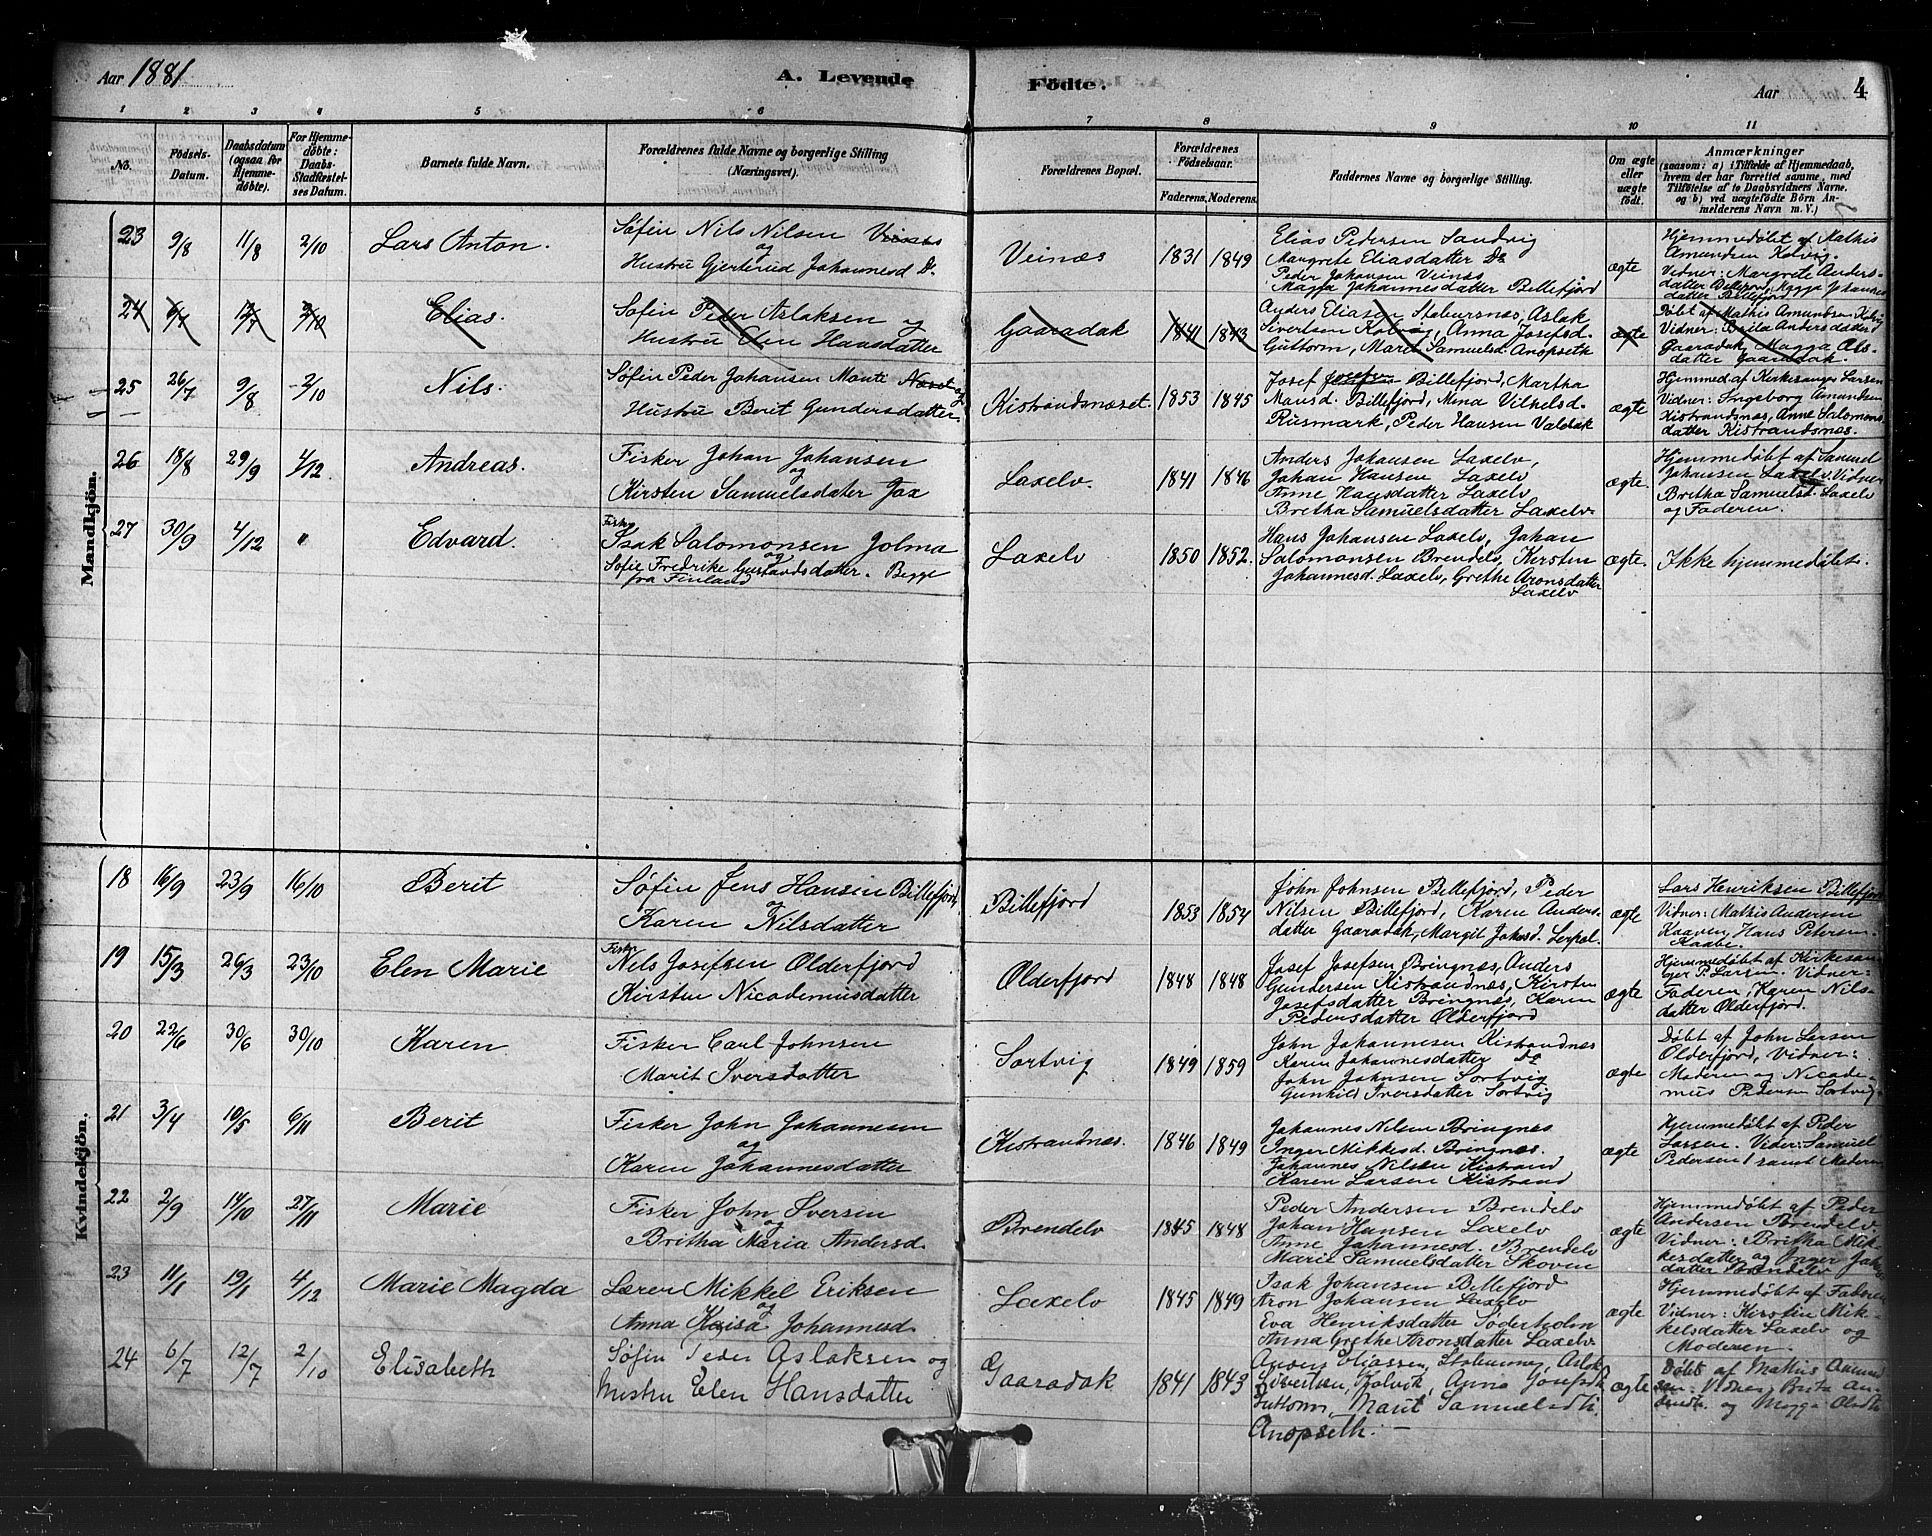 Aar 1881
A. Levende
Fødte.
Aar
4
1 2 3 4 5 6 7 8 9 10 11
No.
Fødsels-
Datum.
Daabsdatum
(ogsaa for
Hjemme-
døbte).
For Hjemme-
døbte:
Daabs-
Stadfæstel-
ses Datum.
Barnets fulde Navn.
Forældrenes fulde Navne og borgerlige Stilling
(Næringsvei).
Forældrenes Bopæl.
Forældrenes
Fødselsaar.
Faderens. Moderens.
Faddernes Navne og borgerlige Stilling.
Om ægte
eller
uægte
født.
Anmærkninger
(saasom: a) i Tilfælde af Hjemmedaab,
hvem der har forrettet samme, med
Tilføielse af to Daabsvidners Navne.
og b) ved uægtefødte Børn An-
melderens Navn m. V.)
Mandkjön.
23 9/8 11/8 2/10 Lars Anton.
Søfin Nils Nilsen Veines
og
Hustru Gjertrud Johannesd Do
Veinæs 1831 1849
Elias Pedersen Sandvig
Margrete Eliasdatter Do
Peder Johansen Veinæs
Magga Johannesdatter Billefjord
ægte
Hjemmedøbt af Mathis
Amundsen Kolvig.
Vidner: Margrete Anders-
datter Billefjord, Magga Johannes
datter Billefjord
24 6/7 12/7 2/10 Elias.
Søfin Peder Aslaksen og
Hustru Elen Hansdatter
Gaaradak 1841 1843
Anders Eliasen Stabursnæs, Aslak
Sivertsen Kolvig, Anna Josefsd.
Guttorm, Marit Samuelsd. Anopseth
ægte
Døbt af Mathis Amundsen Kolvig
Vidner: Brita Andersdatter
Gaaradak, Magga Ols-
datter Gaaradak.
25 26/7 9/8 2/10 Nils.
Søfin Peder Johansen Monti Næset og
Hustru Berit Gundersdatter.
Kistrandsnæset. 1853 1845
Josef Josefsen Billefjord, Martha
Mansd. Billefjord, Mina Vilhelsd.
Rusmark, Peder Hansen Valdak
ægte
Hjemmed af Kirkesanger Larsen
Vidner: Ingeborg Amundsen
Kistrandsnæs, Anne Salomons-
datter Kistrandsnæs.
26 18/8 29/9 4/12 Andreas.
Fisker Johan Johansen
og
Kirsten Samuelsdatter Jax
Laxelv. 1841 1846
Anders Johansen Laxelv,
Johan Hansen Laxelv
Anne Hansdatter Laxelv
Bretha Samuelsdatter Laxelv
ægte.
Hjemmedøbt af Samuel
Johansen Laxelv. Vidner
Bretha Samuelsd. Laxelv
og Faderen.
27 30/9 4/12 " Edvard.
Fisker
Isak Salomonsen Jolma
og
Sofie Fredrike Gustavsdatter. Begge
fra Finland
Laxelv 1850 1852.
Hans Johansen Laxelv, Johan
Salomonsen Brendelv, Kersten
Johannesd. Laxelv, Grethe Aronsdatter
Laxelv
ægte.
Ikke hjemmedøbt.
Kvindekjön.
18 16/9 23/9 16/10 Berit
Søfin Jens Hansen Billefjord
og
Karen Nilsdatter
Billefjord 1853 1854
John Johnsen Billefjord, Peder
Nilsen Billefjord, Karen Anders-
datter Gaaradak, Margit Johsd. Lerpol.
ægte
Lars Henriksen Billefjord
Vidner: Mathis Andersen
Kaaven, Hans Petersen
Kaabe.
19 15/3 26/3 23/10 Elen Marie
Fisker
Nils Josefsen Olderfjord
Kirsten Nicodemusdatter
Olderfjord 1848 1848
Josef Josefsen Bringnæs, Anders
Gundersen Kistrandnæs, Kirsten
Josefsdatter Bringnæs, Karen
Pedersdatter Olderfjord
ægte
Hjemmedøbt af Kirkesan-
ger P. Larsen. Vidner:
Faderen, Karen Nils-
datter Olderfjord.
20 22/6 30/6 30/10 Karen
Fisker Carl Johnsen
Marit Iversdatter
Sortvig 1849 1859
John Johannesen Kistrandnæs
Karen Johannesdatter Do
John Johnsen Sortvig
Gunhild Iversdatter Sortvig
ægte
Døbt af John Larsen
Olderfjord, Vidner:
Moderen og Nicode-
mus Pedersen Sortvig
21 3/4 10/5 6/11 Berit
Fisker John Johannesen
og
Karen Johannesdatter
Kistrandnæs. 1846 1849
Johannes Nilsen Bringnes
Inger Mikkesd. Bringnæs.
Johannes Nilsen Kistrand
Karen Larsen Kistrand
ægte
Hjemmedøbt af Peder
Larsen. Vider: Samuel
Pedersen samt Moderen
22 2/9 14/10 27/11 Marie
Fisker John Iversen
og
Britha Maria Andersd.
Brendelv 1845 1848
Peder Andersen Brendelv
Johan Hansen Laxelv
Anne Johannesd. Brendelv
Marie Samuelsdatter Skoven
ægte
Hjemmedøbt af Peder
Andersen Brendelv
Vidner: Britha Mik-
kelsdatter og Inger Johns
datter Brendelv
23 11/1 19/1 4/12 Marie Magda
Lærer Mikkel Eriksen
og
Anna Kaisa Johannesd.
Laxelv 1845 1849
Isak Johansen Billefjord
Aron Johansen Laxelv
Eva Henriksdatter Søderholm
Anna Grethe Aronsdatter Laxelv
ægte
Hjemmedøbt af Faderen
Vidner: Kirstin Mik-
kelsdatter Laxelv og
Moderen.
24 6/7 12/7 2/10 Elisabeth
Søfin Peder Aslaksen og
Hustru Elen Hansdatter
Gaaradak 1841 1843
Anders Eliassen, Staburnæs, Aslak
Sivertsen, Kolvik, Anna Josefsdt
Guttorm, Marit Samuelsdt.
Anopseth.
ægte
Døbt af Mathis Amund
sen. Vidner: Brita An-
dersdt. og Magga Olsdt